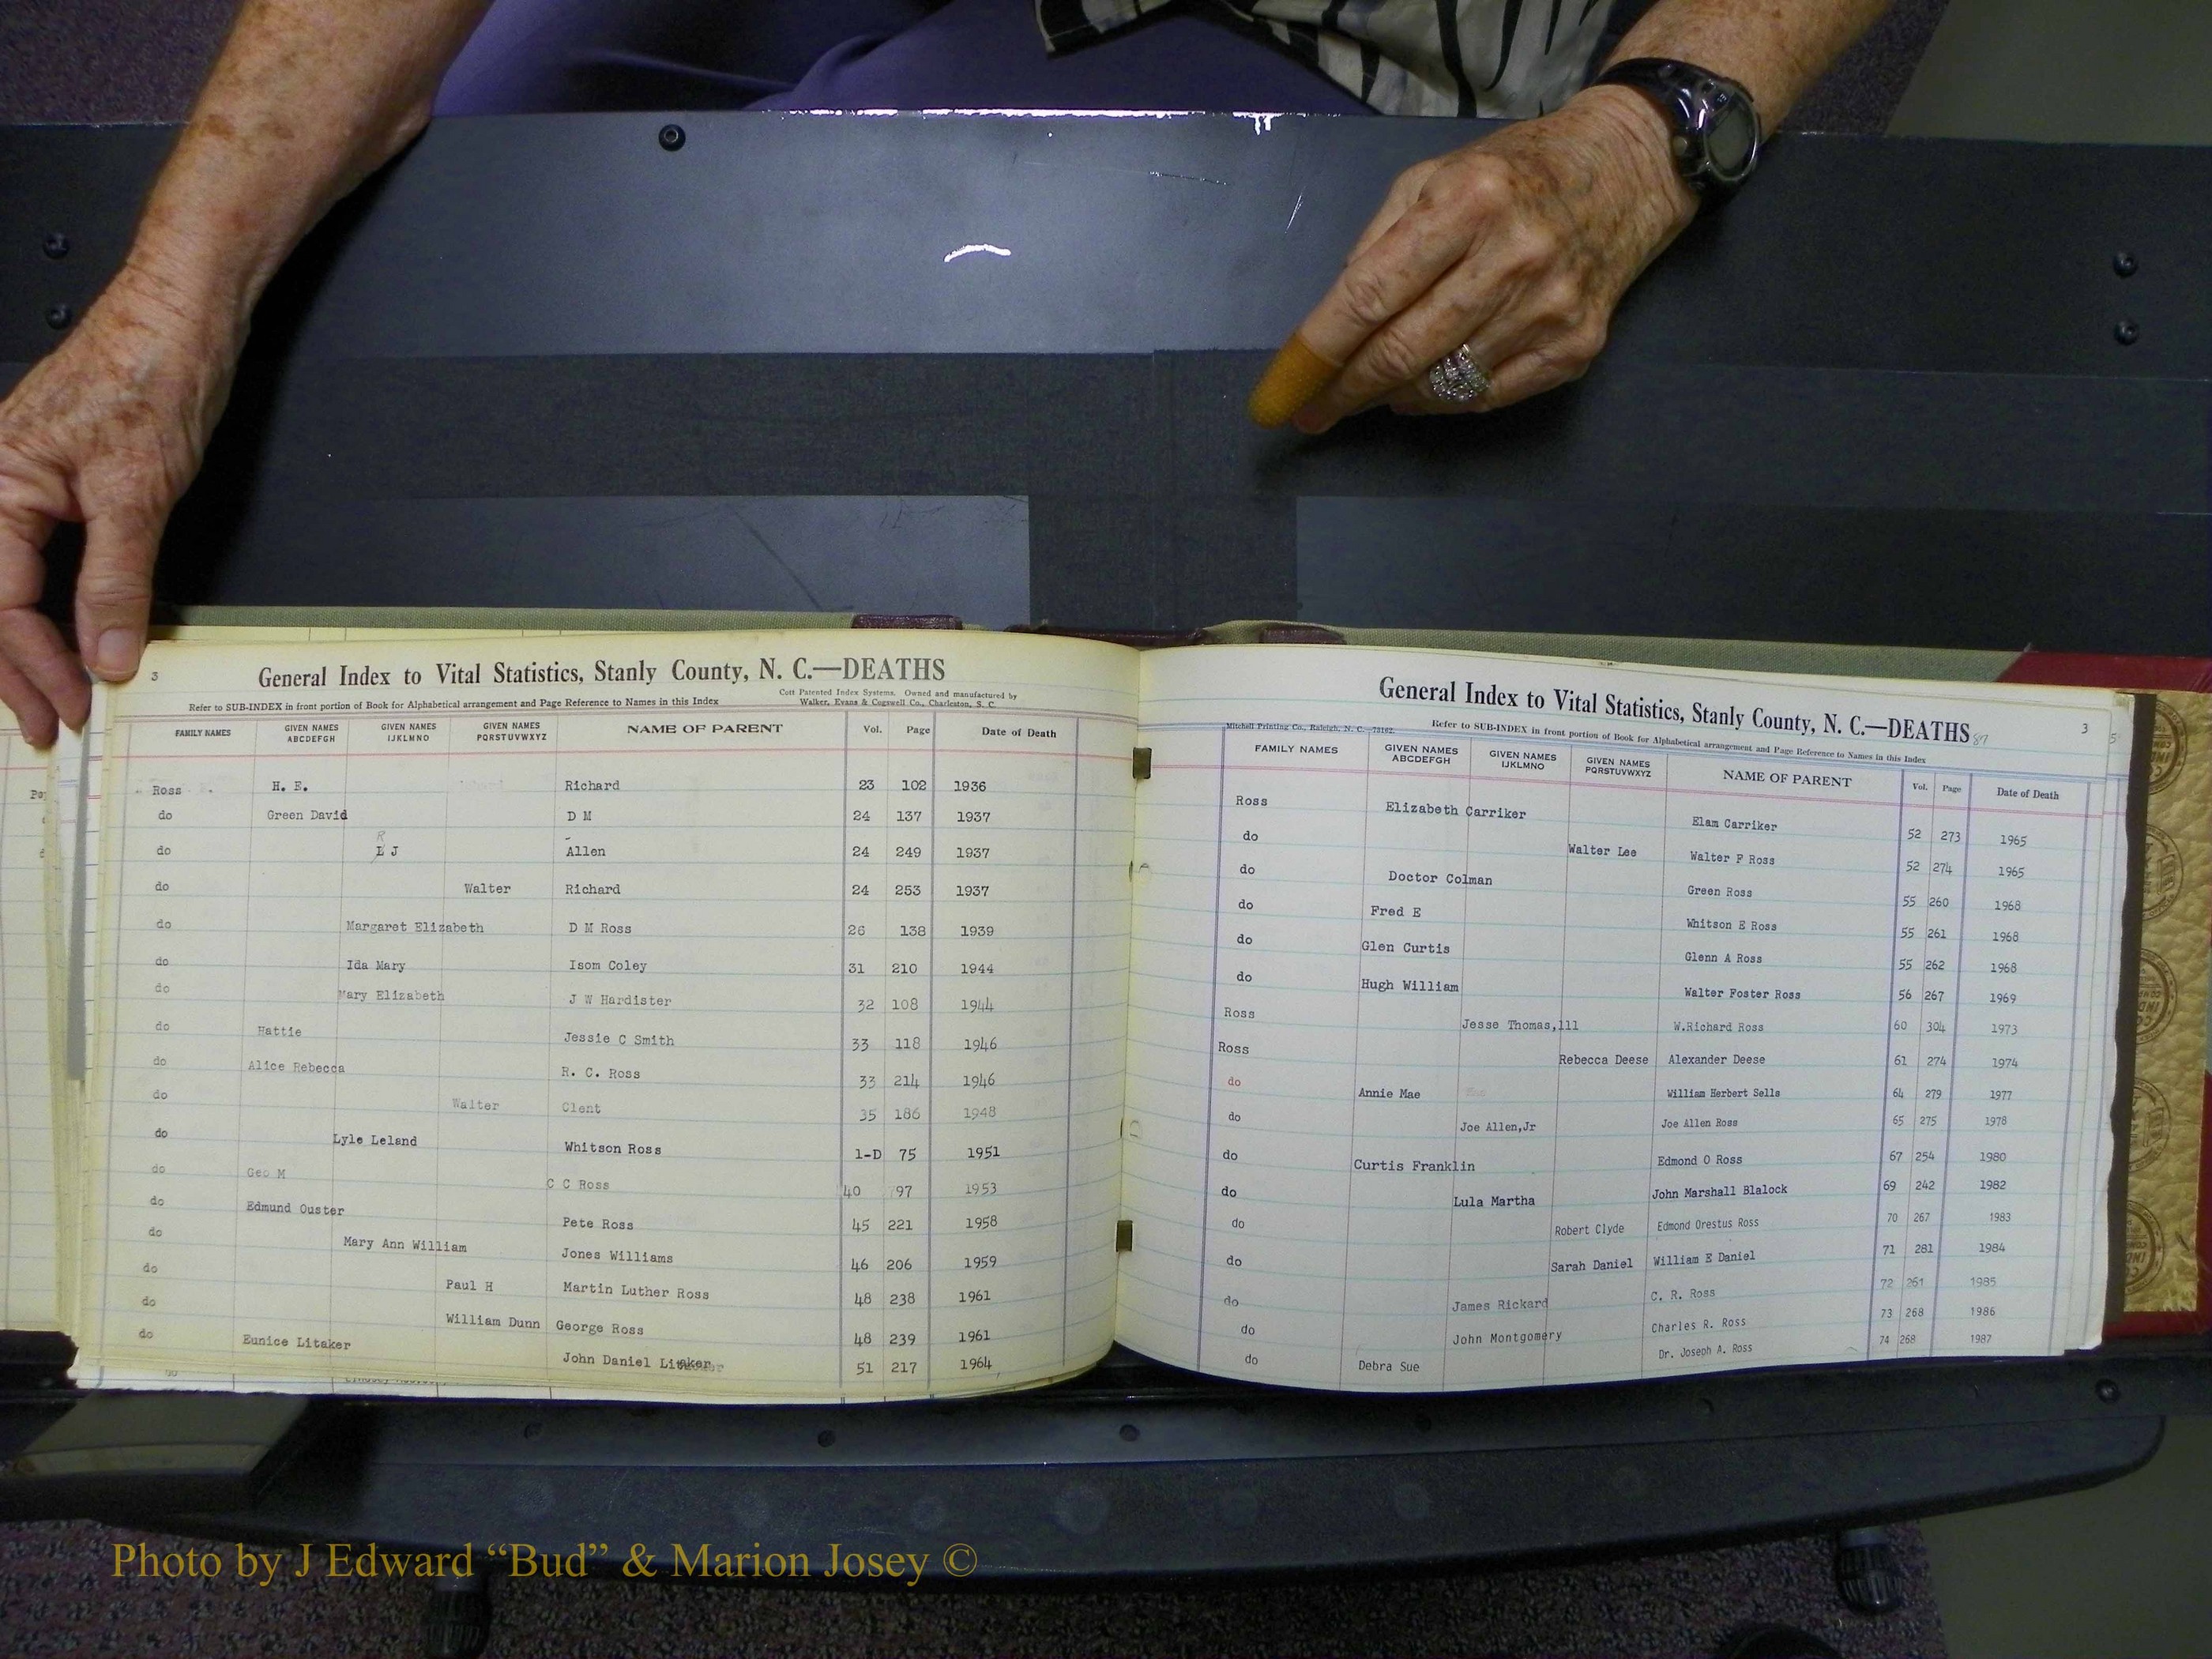 3
General Index to Vital Statistics, Stanly County, N. C.—DEATHS
Cott Patented Index Systems. Owned and manufactured by
Refer to SUB-INDEX in front portion of Book for Alphabetical arrangement and Page Reference to Names in this Index Walker, Evans & Cogswell Co., Charleston, S. C.
FAMILY NAMES GIVEN NAMES ABCDEFGH GIVEN NAMES IJKLMNO GIVEN NAMES PQRSTUVWXYZ NAME OF PARENT Vol. Page Date of Death
Ross H. E. Richard 23 102 1936
do Green David D M 24 137 1937
do R J Allen 24 249 1937
do Walter Richard 24 253 1937
do Margaret Elizabeth D M Ross 26 138 1939
do Ida Mary Isom Coley 31 210 1944
do Mary Elizabeth J W Hardister 32 108 1944
do Hattie Jessie C Smith 33 118 1946
do Alice Rebecca R. C. Ross 33 214 1946
do Walter Clent 35 186 1948
do Lyle Leland Whitson Ross 1-D 75 1951
do Geo M C C Ross 40 97 1953
do Edmund Ouster Pete Ross 45 221 1958
do Mary Ann William Jones Williams 46 206 1959
do Paul H Martin Luther Ross 48 238 1961
do William Dunn George Ross 48 239 1961
do Eunice Litaker John Daniel Litaker 51 217 1964
General Index to Vital Statistics, Stanly County, N. C.—DEATHS 87 3
Mitchell Printing Co., Raleigh, N. C.—75162. Refer to SUB-INDEX in front portion of Book for Alphabetical arrangement and Page Reference to Names in this Index
FAMILY NAMES GIVEN NAMES ABCDEFGH GIVEN NAMES IJKLMNO GIVEN NAMES PQRSTUVWXYZ NAME OF PARENT Vol. Page Date of Death
Ross Elizabeth Carriker Elam Carriker 52 273 1965
do Walter Lee Walter F Ross 52 274 1965
do Doctor Colman Green Ross 55 260 1968
do Fred E Whitson E Ross 55 261 1968
do Glen Curtis Glenn A Ross 55 262 1968
do Hugh William Walter Foster Ross 56 267 1969
Ross Jesse Thomas,lll W.Richard Ross 60 304 1973
Ross Rebecca Deese Alexander Deese 61 274 1974
do Annie Mae William Herbert Sells 64 279 1977
do Joe Allen,Jr Joe Allen Ross 65 275 1978
do Curtis Franklin Edmond O Ross 67 254 1980
do Lula Martha John Marshall Blalock 69 242 1982
do Robert Clyde Edmond Orestus Ross 70 267 1983
do Sarah Daniel William E Daniel 71 281 1984
do James Rickard C. R. Ross 72 261 1985
do John Montgomery Charles R. Ross 73 268 1986
do Debra Sue Dr. Joseph A. Ross 74 268 1987
Photo by J Edward “Bud” & Marion Josey ©